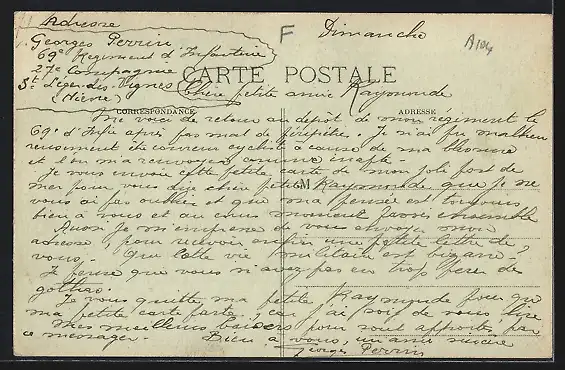 Adresse
Dimanche
F
A104
Georges Perrin
69e Régiment d'Infanterie
27e Compagnie
CARTE POSTALE
St Léger des Vignes
(Nièvre)
Chère petite amie Raymonde
CORRESPONDANCE
ADRESSE
Me voici de retour au dépot de mon régiment le
69e d'Infie après pas mal de péripéties. Je n'ai pu malheu
reusement être coureur cycliste à cause de ma blessure
et l'on m'a renvoyé comme inapte.
Je vous envoie cette petite carte de mon joli port de
mer pour vous dire chère petite Raymonde que je ne
M
vous ai pas oubliée et que ma pensée est toujours
bien à vous et au moment passés ensemble
Aussi je m'empresse de vous envoyer mon
adresse, pour recevoir enfin une petite lettre de
vous. Que cette vie militaire est bizarre?
Je pense que vous n'avez pas eu trop peur des
gothas.
Je vous quitte ma petite Raymonde pour que
ma petite carte parte, car j'ai soif de vous lire
Mes meilleurs baisers pour vous apportés par
ce messager. Bien à vous, un ami sincère
Georges Perrin